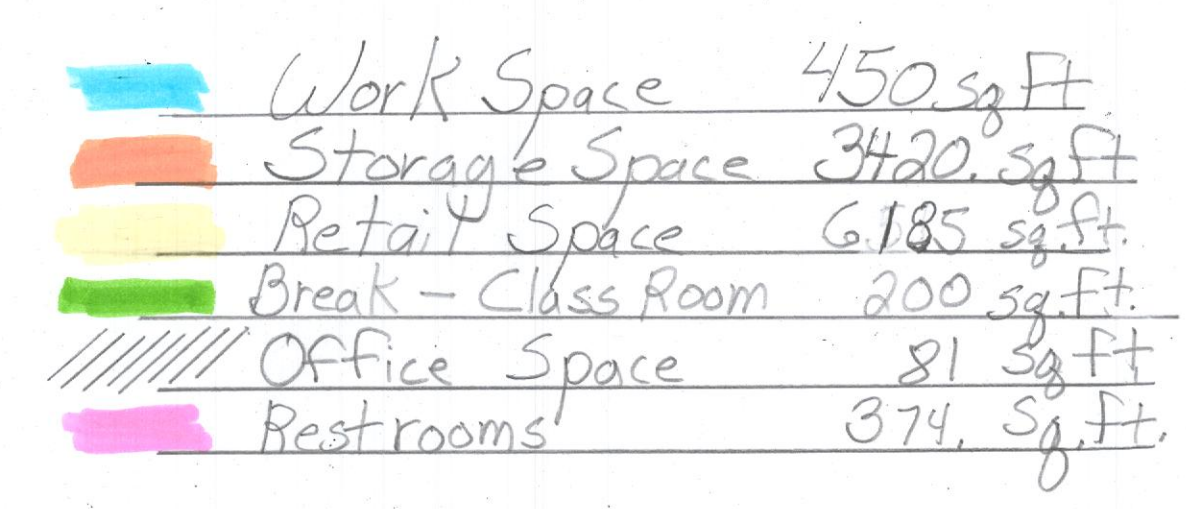 Work Space 450 sq Ft
Storage Space 3420. sq ft
Retail Space 6185 sq.ft.
Break - Class Room 200 sq.ft.
Office Space 81 sq ft
Restrooms 374. Sq.ft.